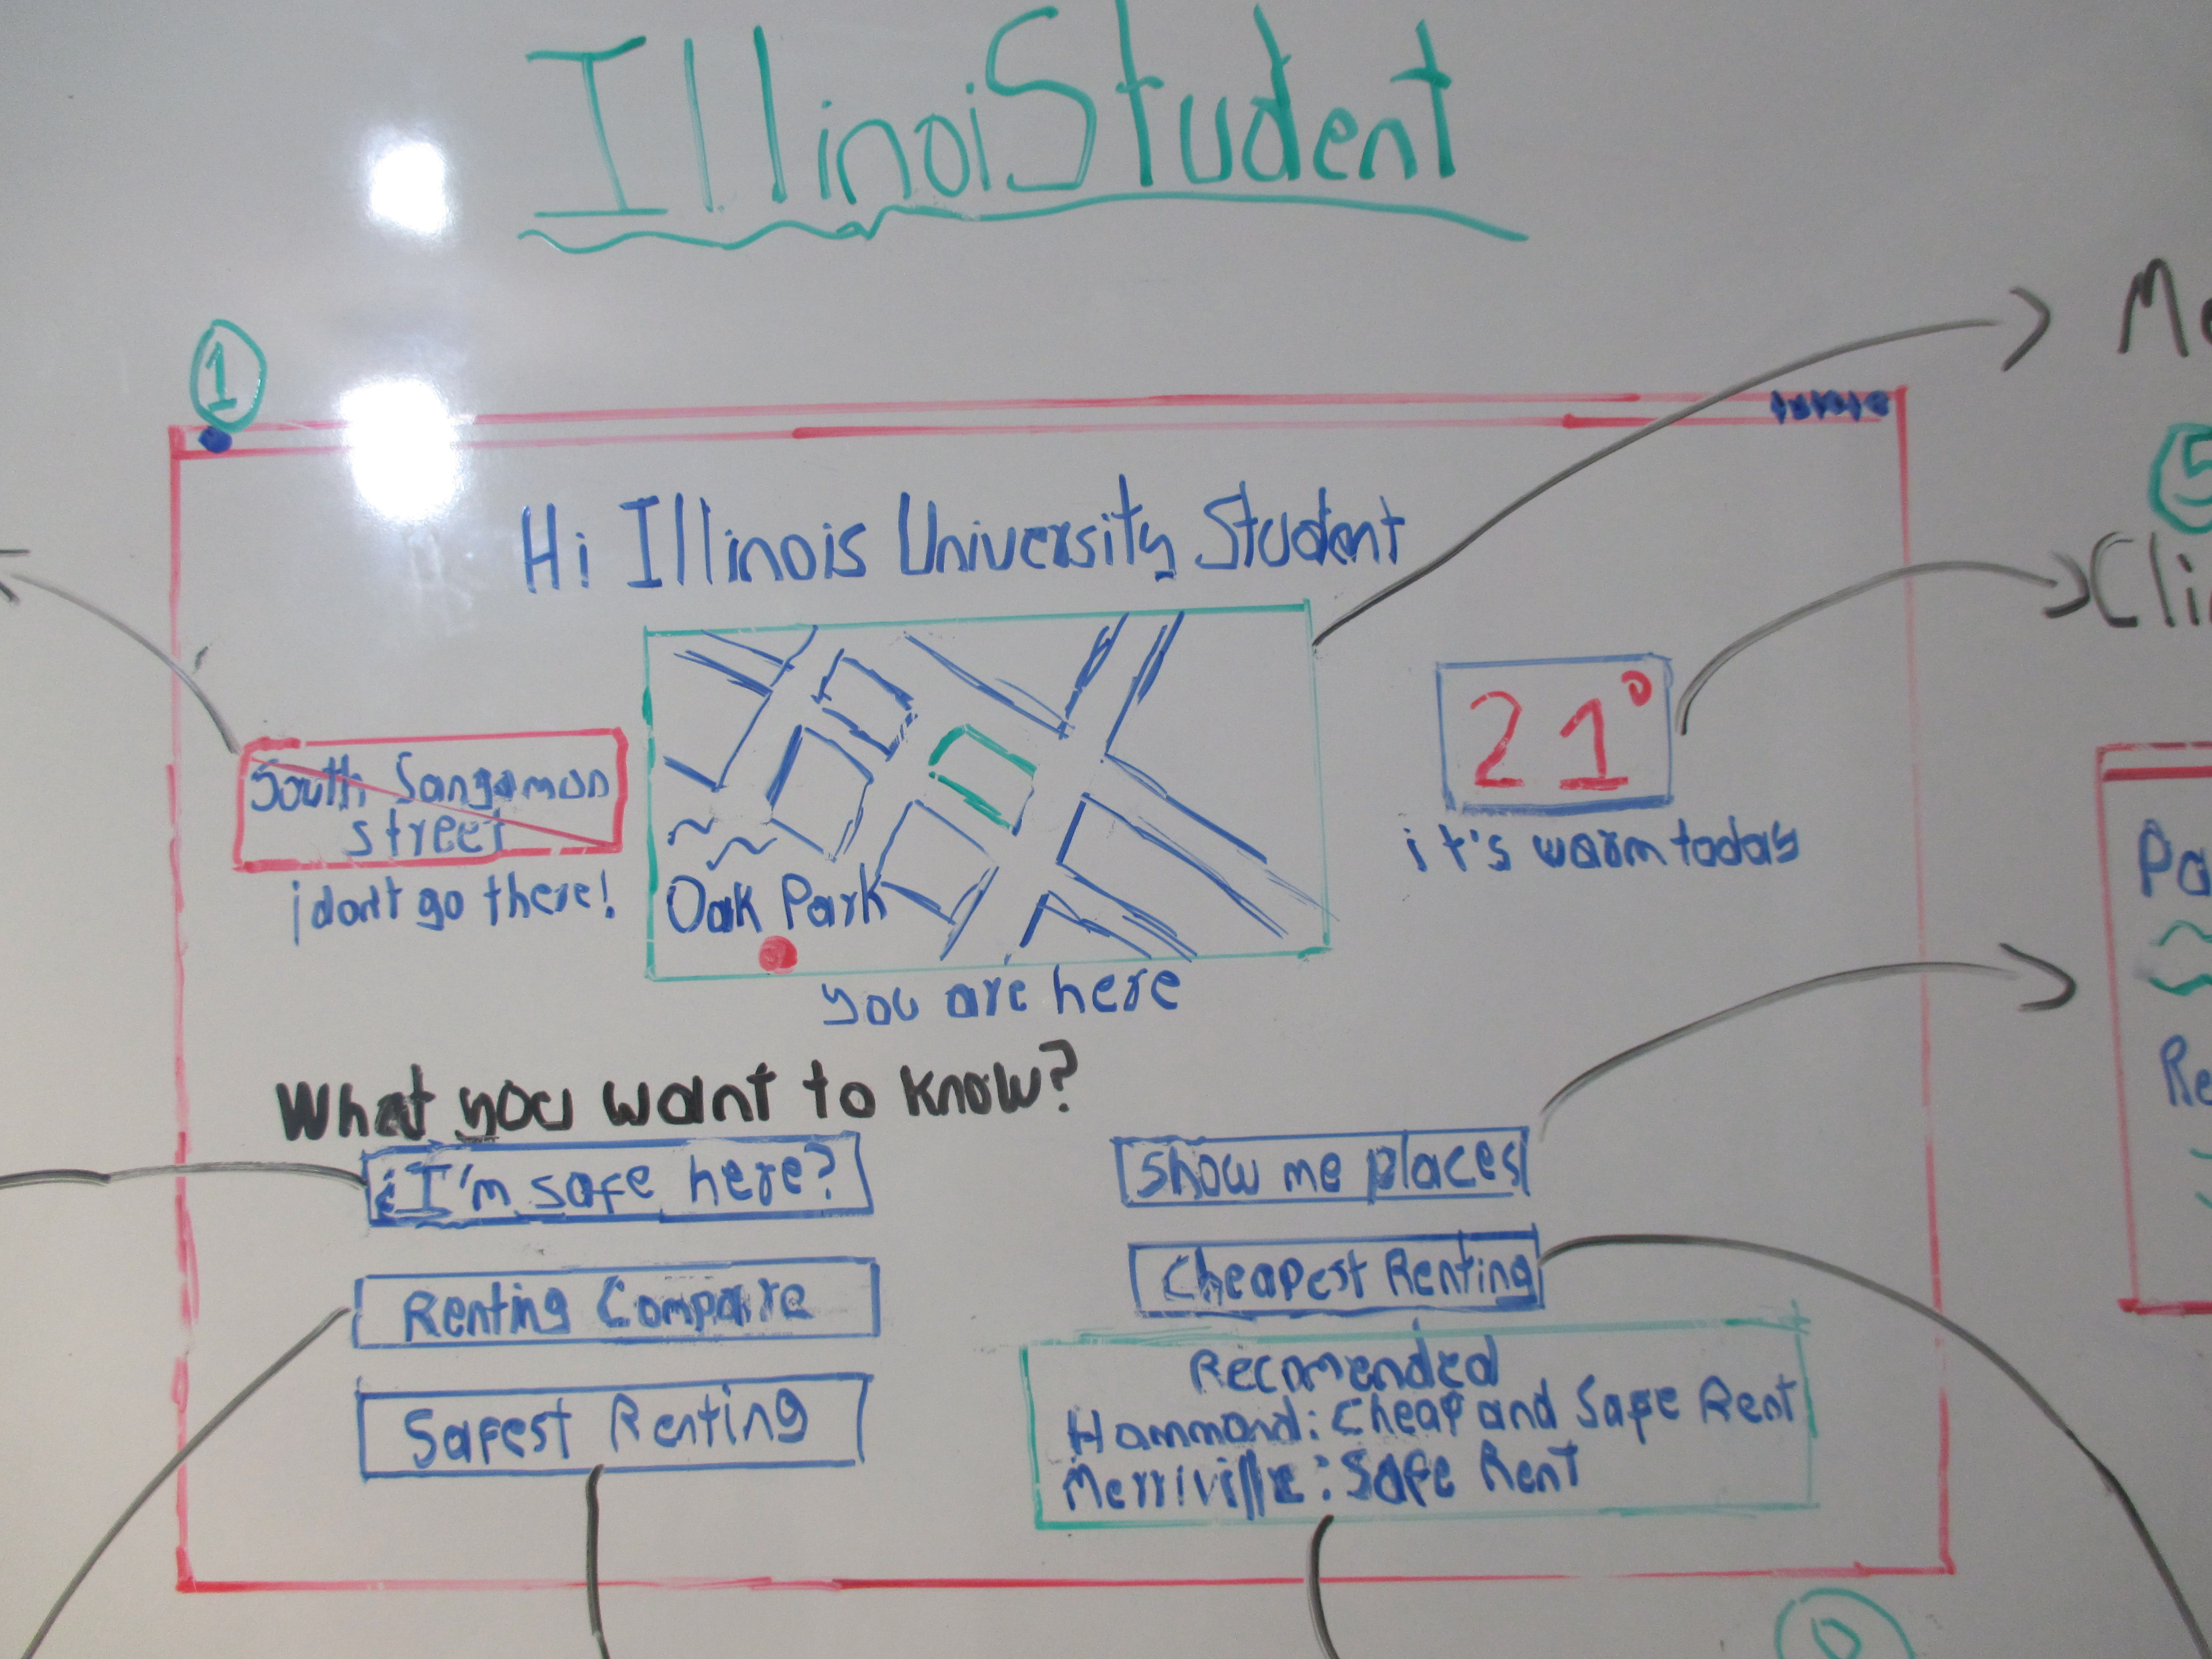 IllinoiStudent
1
Hi Illinois University Student
5
South Sangamon
street
i don't go there!
Oak Park
you are here
21°
it's warm today
What you want to know?
¿I'm safe here?
Show me places
Renting Compare
Cheapest Renting
Safest Renting
Recomended
Hammond: Cheap and Safe Rent
Merriville: Safe Rent